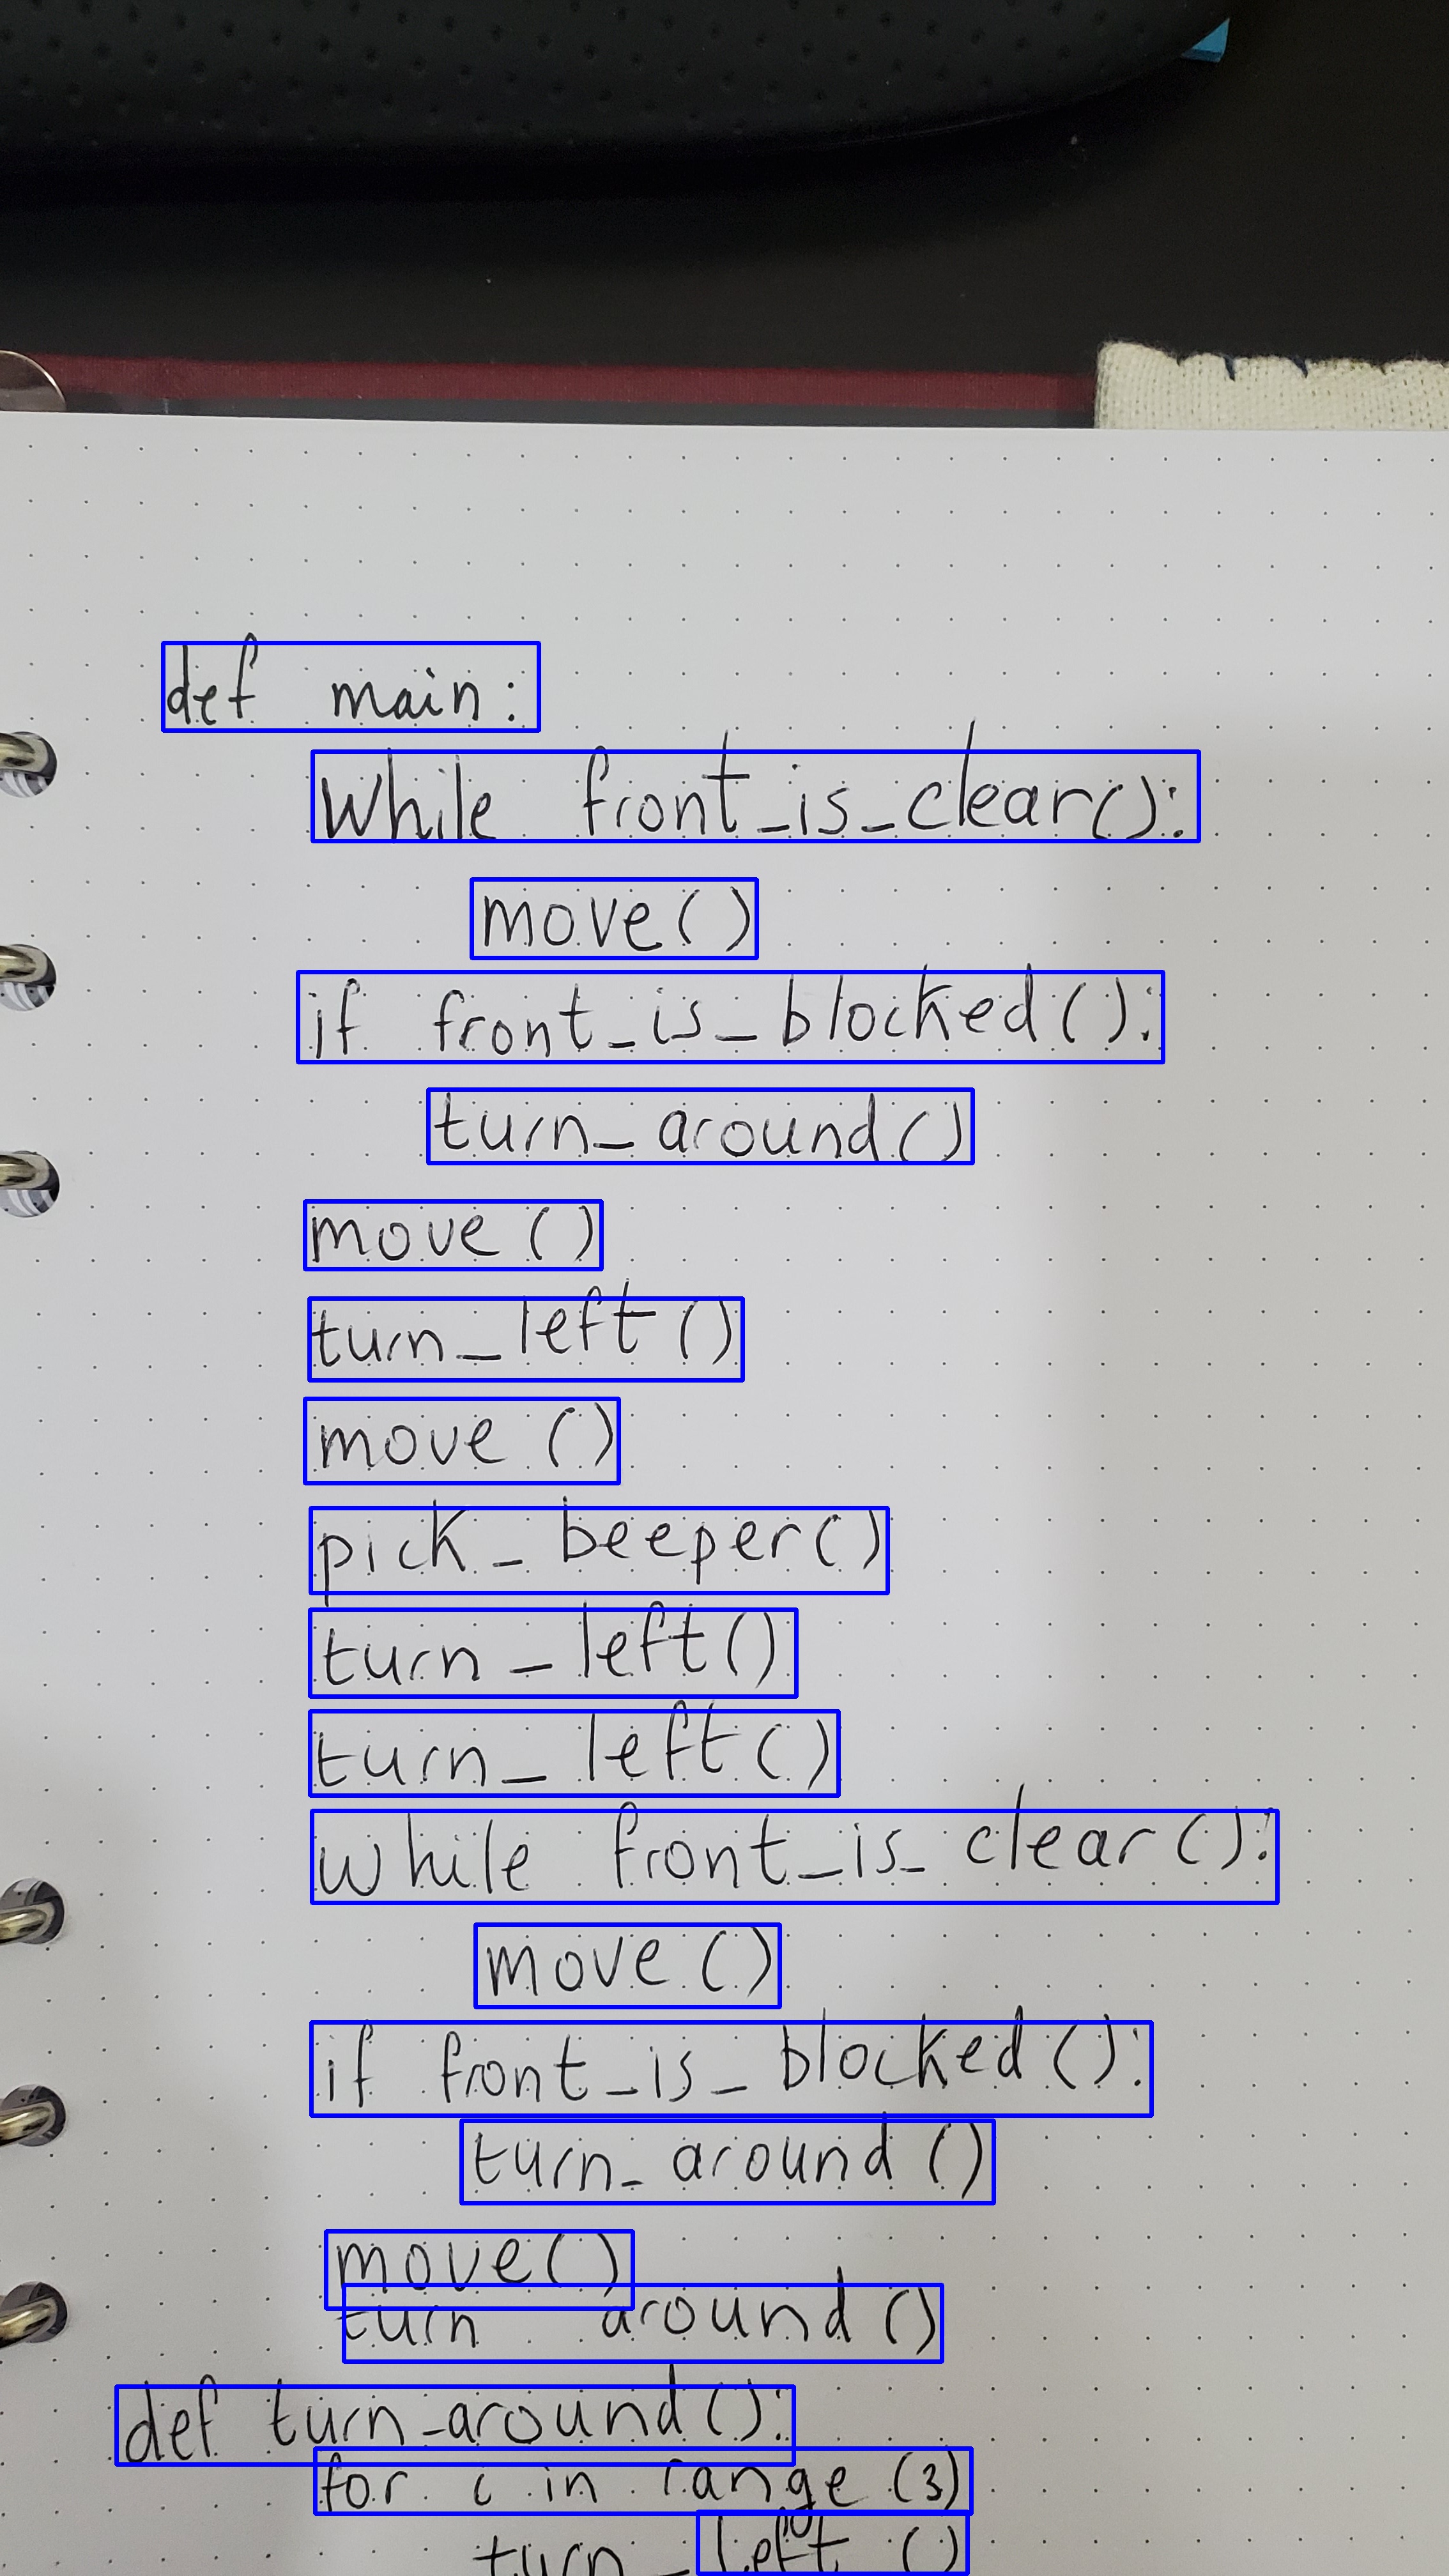 def main:
    while front_is_clear():
        move()
    if front_is_blocked():
        turn_around()
    move()
    turn_left()
    move()
    pick_beeper()
    turn_left()
    turn_left()
    while front_is_clear():
        move()
    if front_is_blocked():
        turn_around()
    move()
    turn around()
def turn_around():
    for i in range(3)
        turn_left()